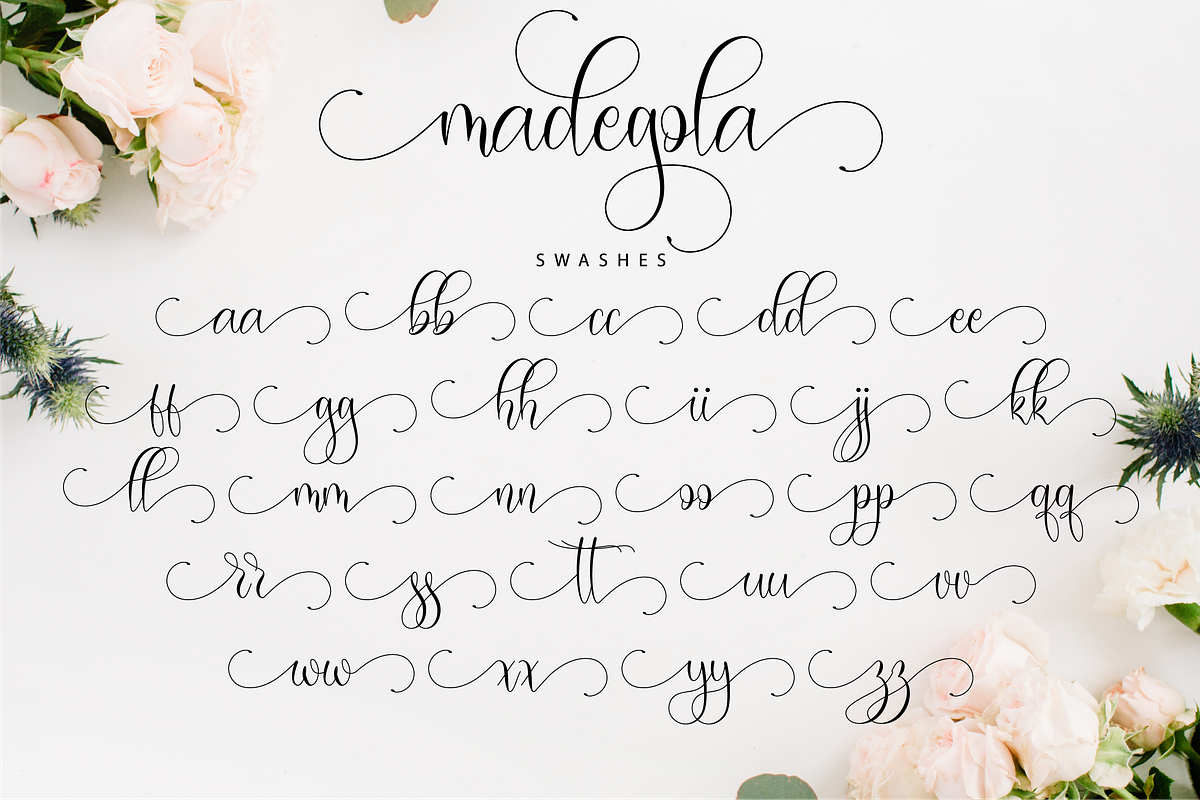 madegola
SWASHES
aa bb cc dd ee
ff gg hh ii jj kk
ll mm nn oo pp qq
rr ss tt uu vv
ww xx yy zz